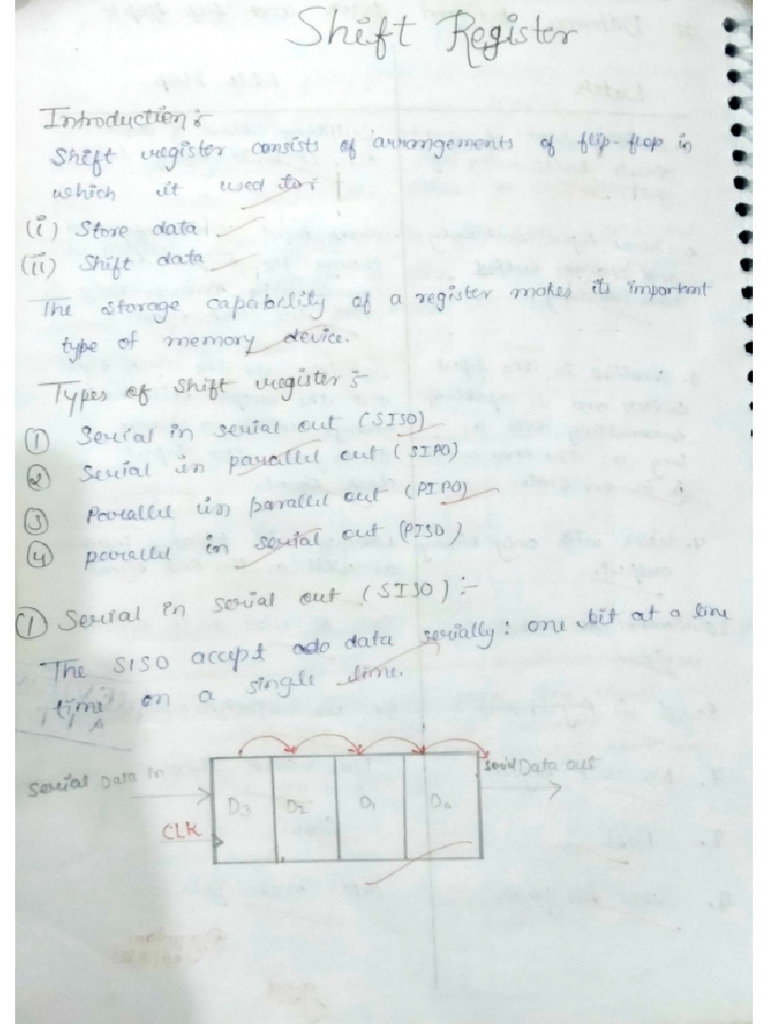 Shift Register
Introduction :-
Shift register consists of arrangements of flip-flop in
which it used for
(i) Store data
(ii) Shift data
The storage capability of a register makes its important
type of memory device.
Types of shift register :-
① Serial in serial out (SISO)
② Serial in parallel out (SIPO)
③ Parallel in parallel out (PIPO)
④ parallel in serial out (PISO)
① Serial in serial out (SISO) :-
The SISO accept data serially: one bit at a line
time on a single line.
Serial Data in
Serial Data out
D3 D2 D1 D0
CLK